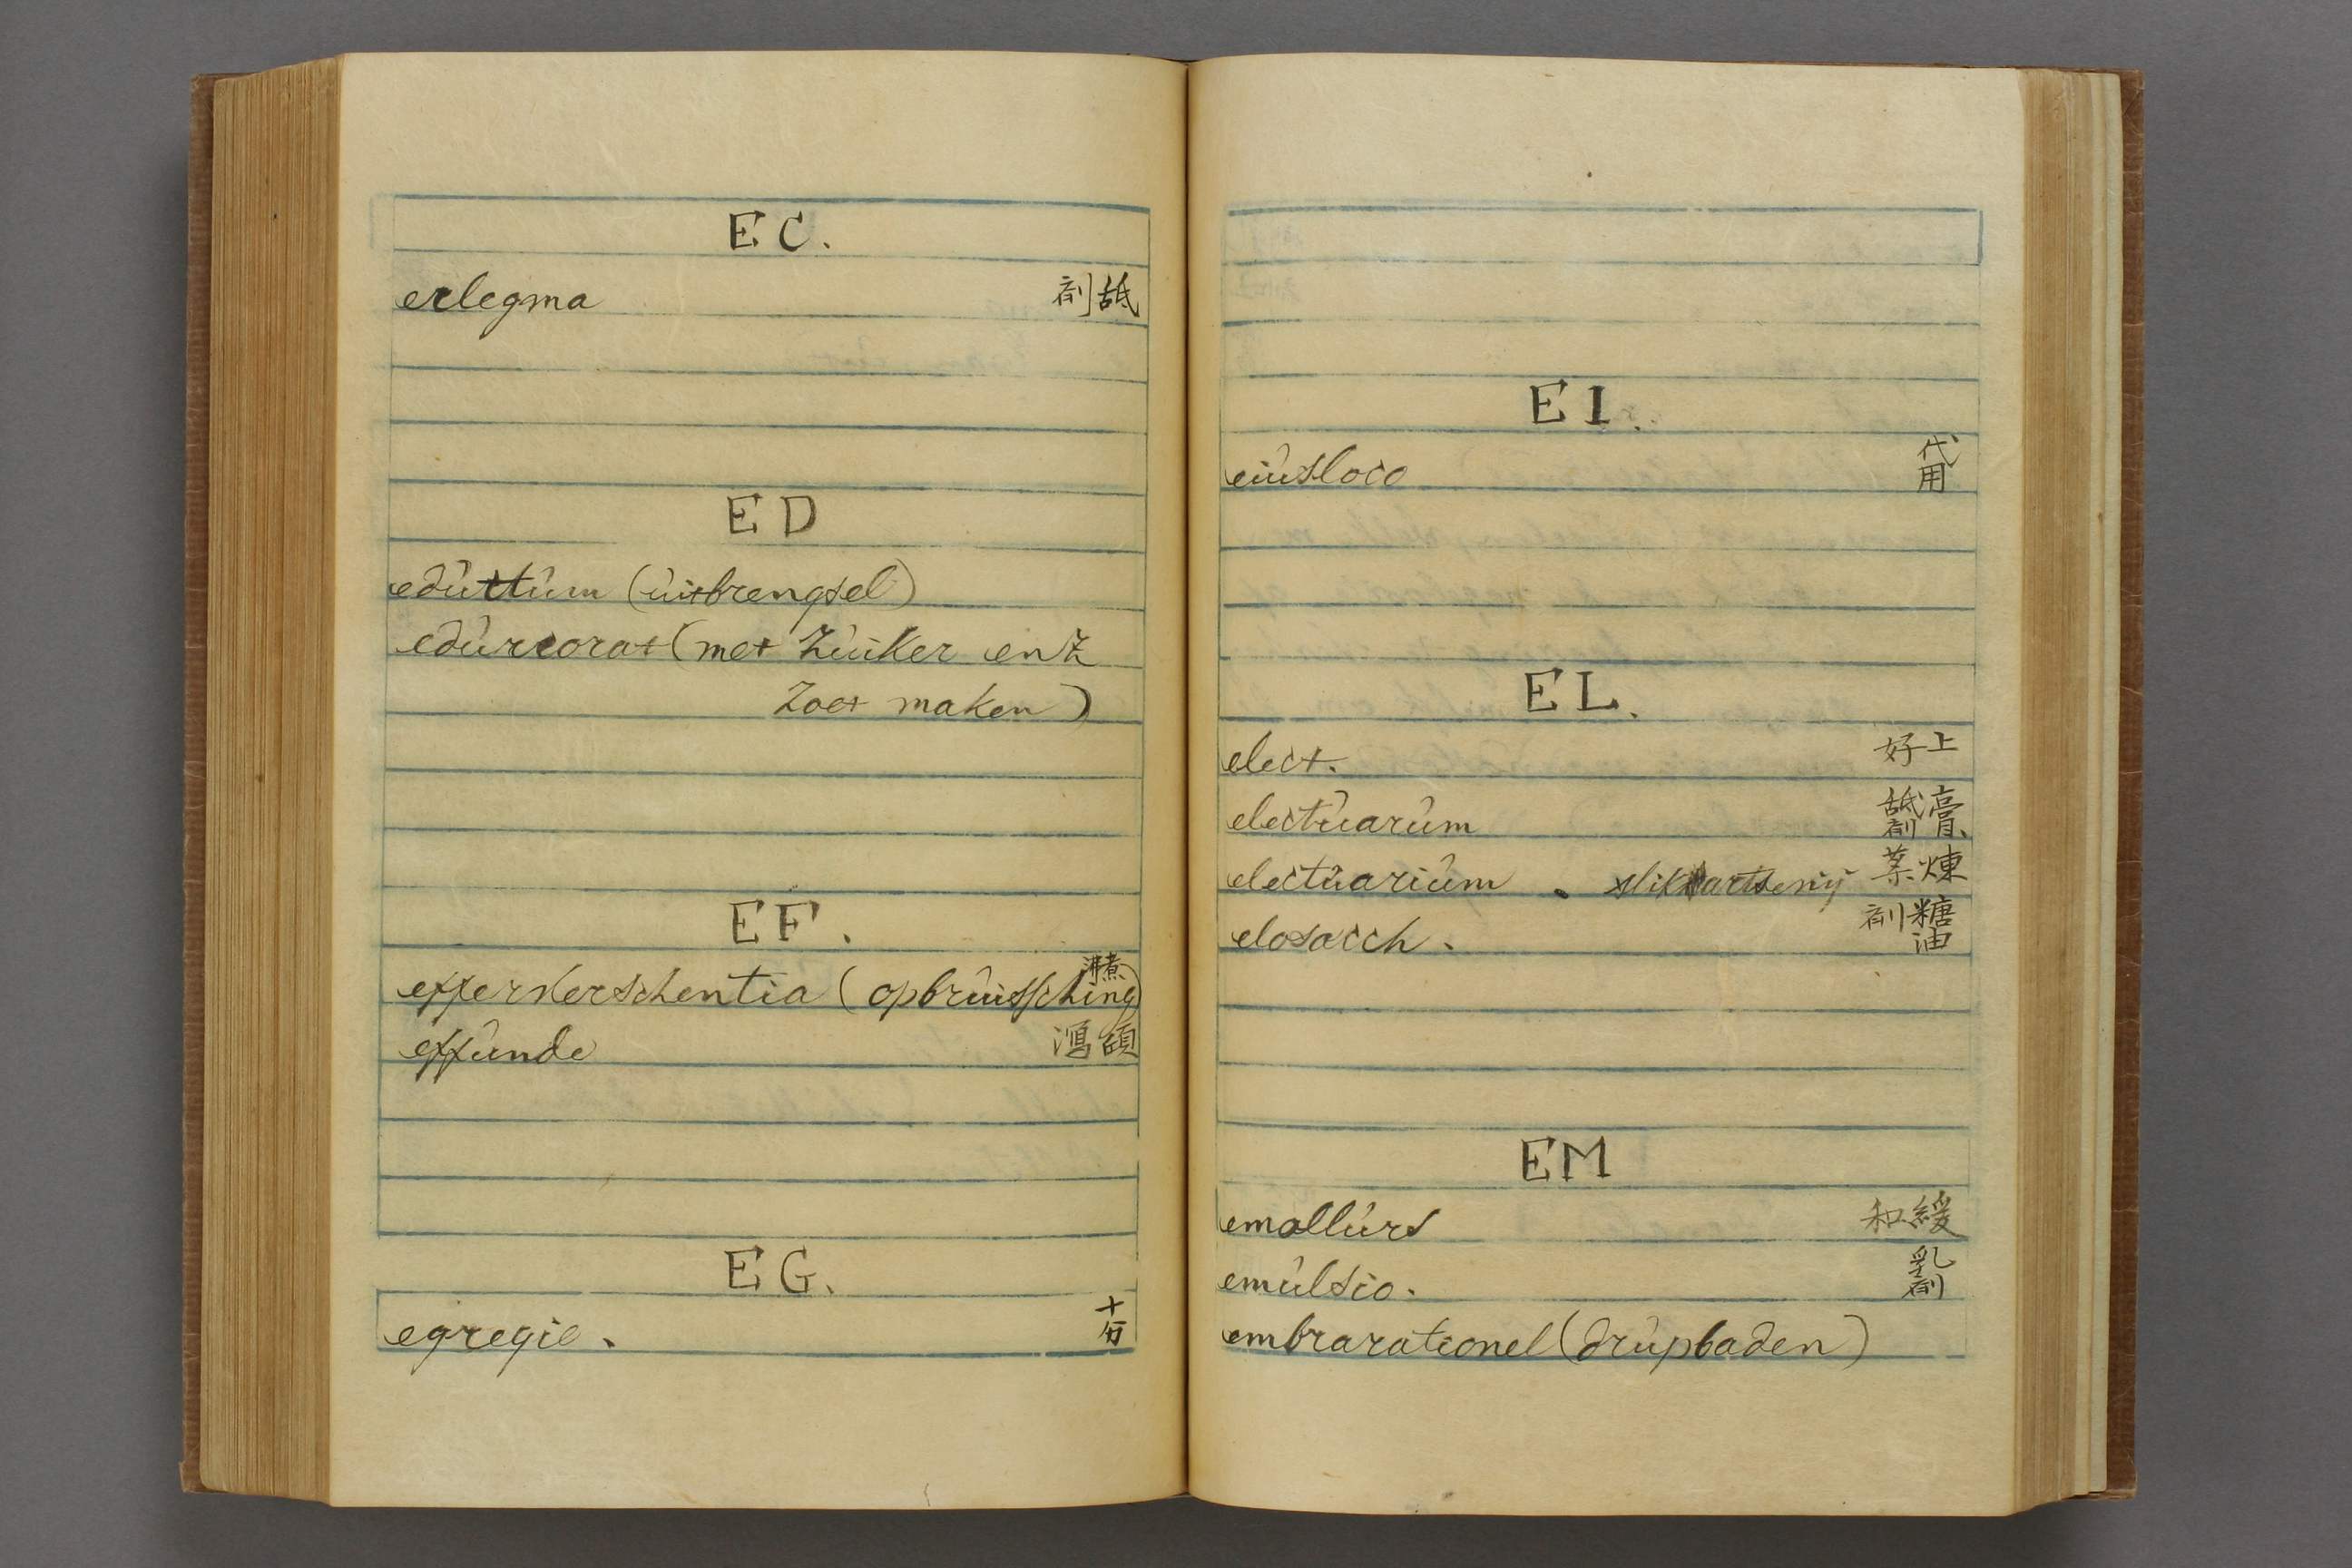 EC.
erlegma 舐剤
ED
edùttùm (ùitbrengsel)
edùrrorat (met Zùiker enZ
Zoet maken)
EF.
effervlerschentia (opbrùissching) 沸煮
effùnde 瀉
EG.
egregie. 十分
EI.
eiùsloco 代用
EL.
elect. 上好
electùarùm 膏 舐剤
electùariùm. slikartsenij 煉薬
elosacch. 糖油剤
EM
emollùrs 緩和
emùlsio. 乳剤
embrarationel (drùpbaden)